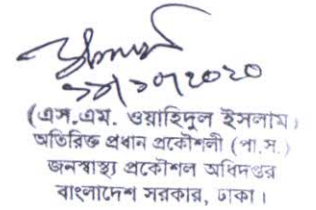 (এস.এম. ওয়াহিদুল ইসলাম)
অতিরিক্ত প্রধান প্রকৌশলী (পা.স.)
জনস্বাস্থ্য প্রকৌশল অধিদপ্তর
বাংলাদেশ সরকার, ঢাকা।